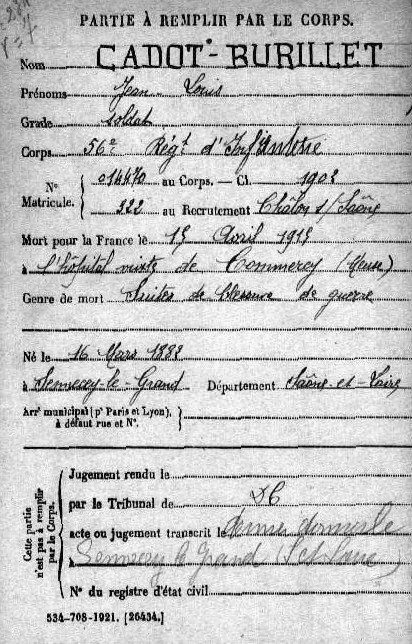 PARTIE À REMPLIR PAR LE CORPS.
Nom CADOT-BURILLET
Prénoms Jean-Louis
Grade soldat
Corps 56e Régt d'Infanterie
No Matricule. 014470 au Corps. — Cl. 1903
322 au Recrutement Châlon s/Saône
Mort pour la France le 15 Avril 1915
à l'hôpital mixte de Commercy (Meuse)
Genre de mort Suites de blessures de guerre
Né le 16 Mars 1883
à Sennecey-le-Grand Département Saône-et-Loire
Arrt municipal (pr Paris et Lyon), à défaut rue et No.
Cette partie n'est pas à remplir par le Corps.
Jugement rendu le
par le Tribunal de DC
acte ou jugement transcrit le dernier domicile
à Sennecey le Grand (S et Loire)
No du registre d'état civil
534-708-1921. [26434.]